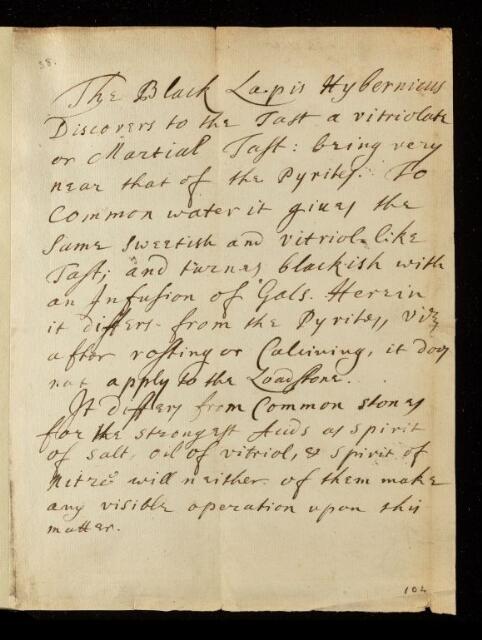 38.
The Black Lapis Hybernicus
Discovers to the Tast a vitriolate
or Martial Tast: being very
near that of the Pyrites. To
Common water it gives the
same sweetish and vitriol-like
Tast; and turnes blackish with
an Infusion of Gals. Herein
it differs from the Pyrites, viz.
after rosting or Calcining, it doos
not apply to the Loadstone.
It differs from Common stones
for the strongest Acids as spirit
of salt, oil of vitriol, & spirit of
Nitre will neither of them make
any visible operation upon this
matter.
102